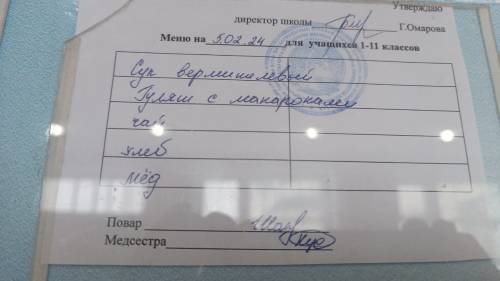 Утверждаю
директор школы Г.Омарова
Меню на 5.02.24 для учащихся 1-11 классов
Суп вермишелевый
Гуляш с макаронами
чай
хлеб
мёд
Повар
Медсестра